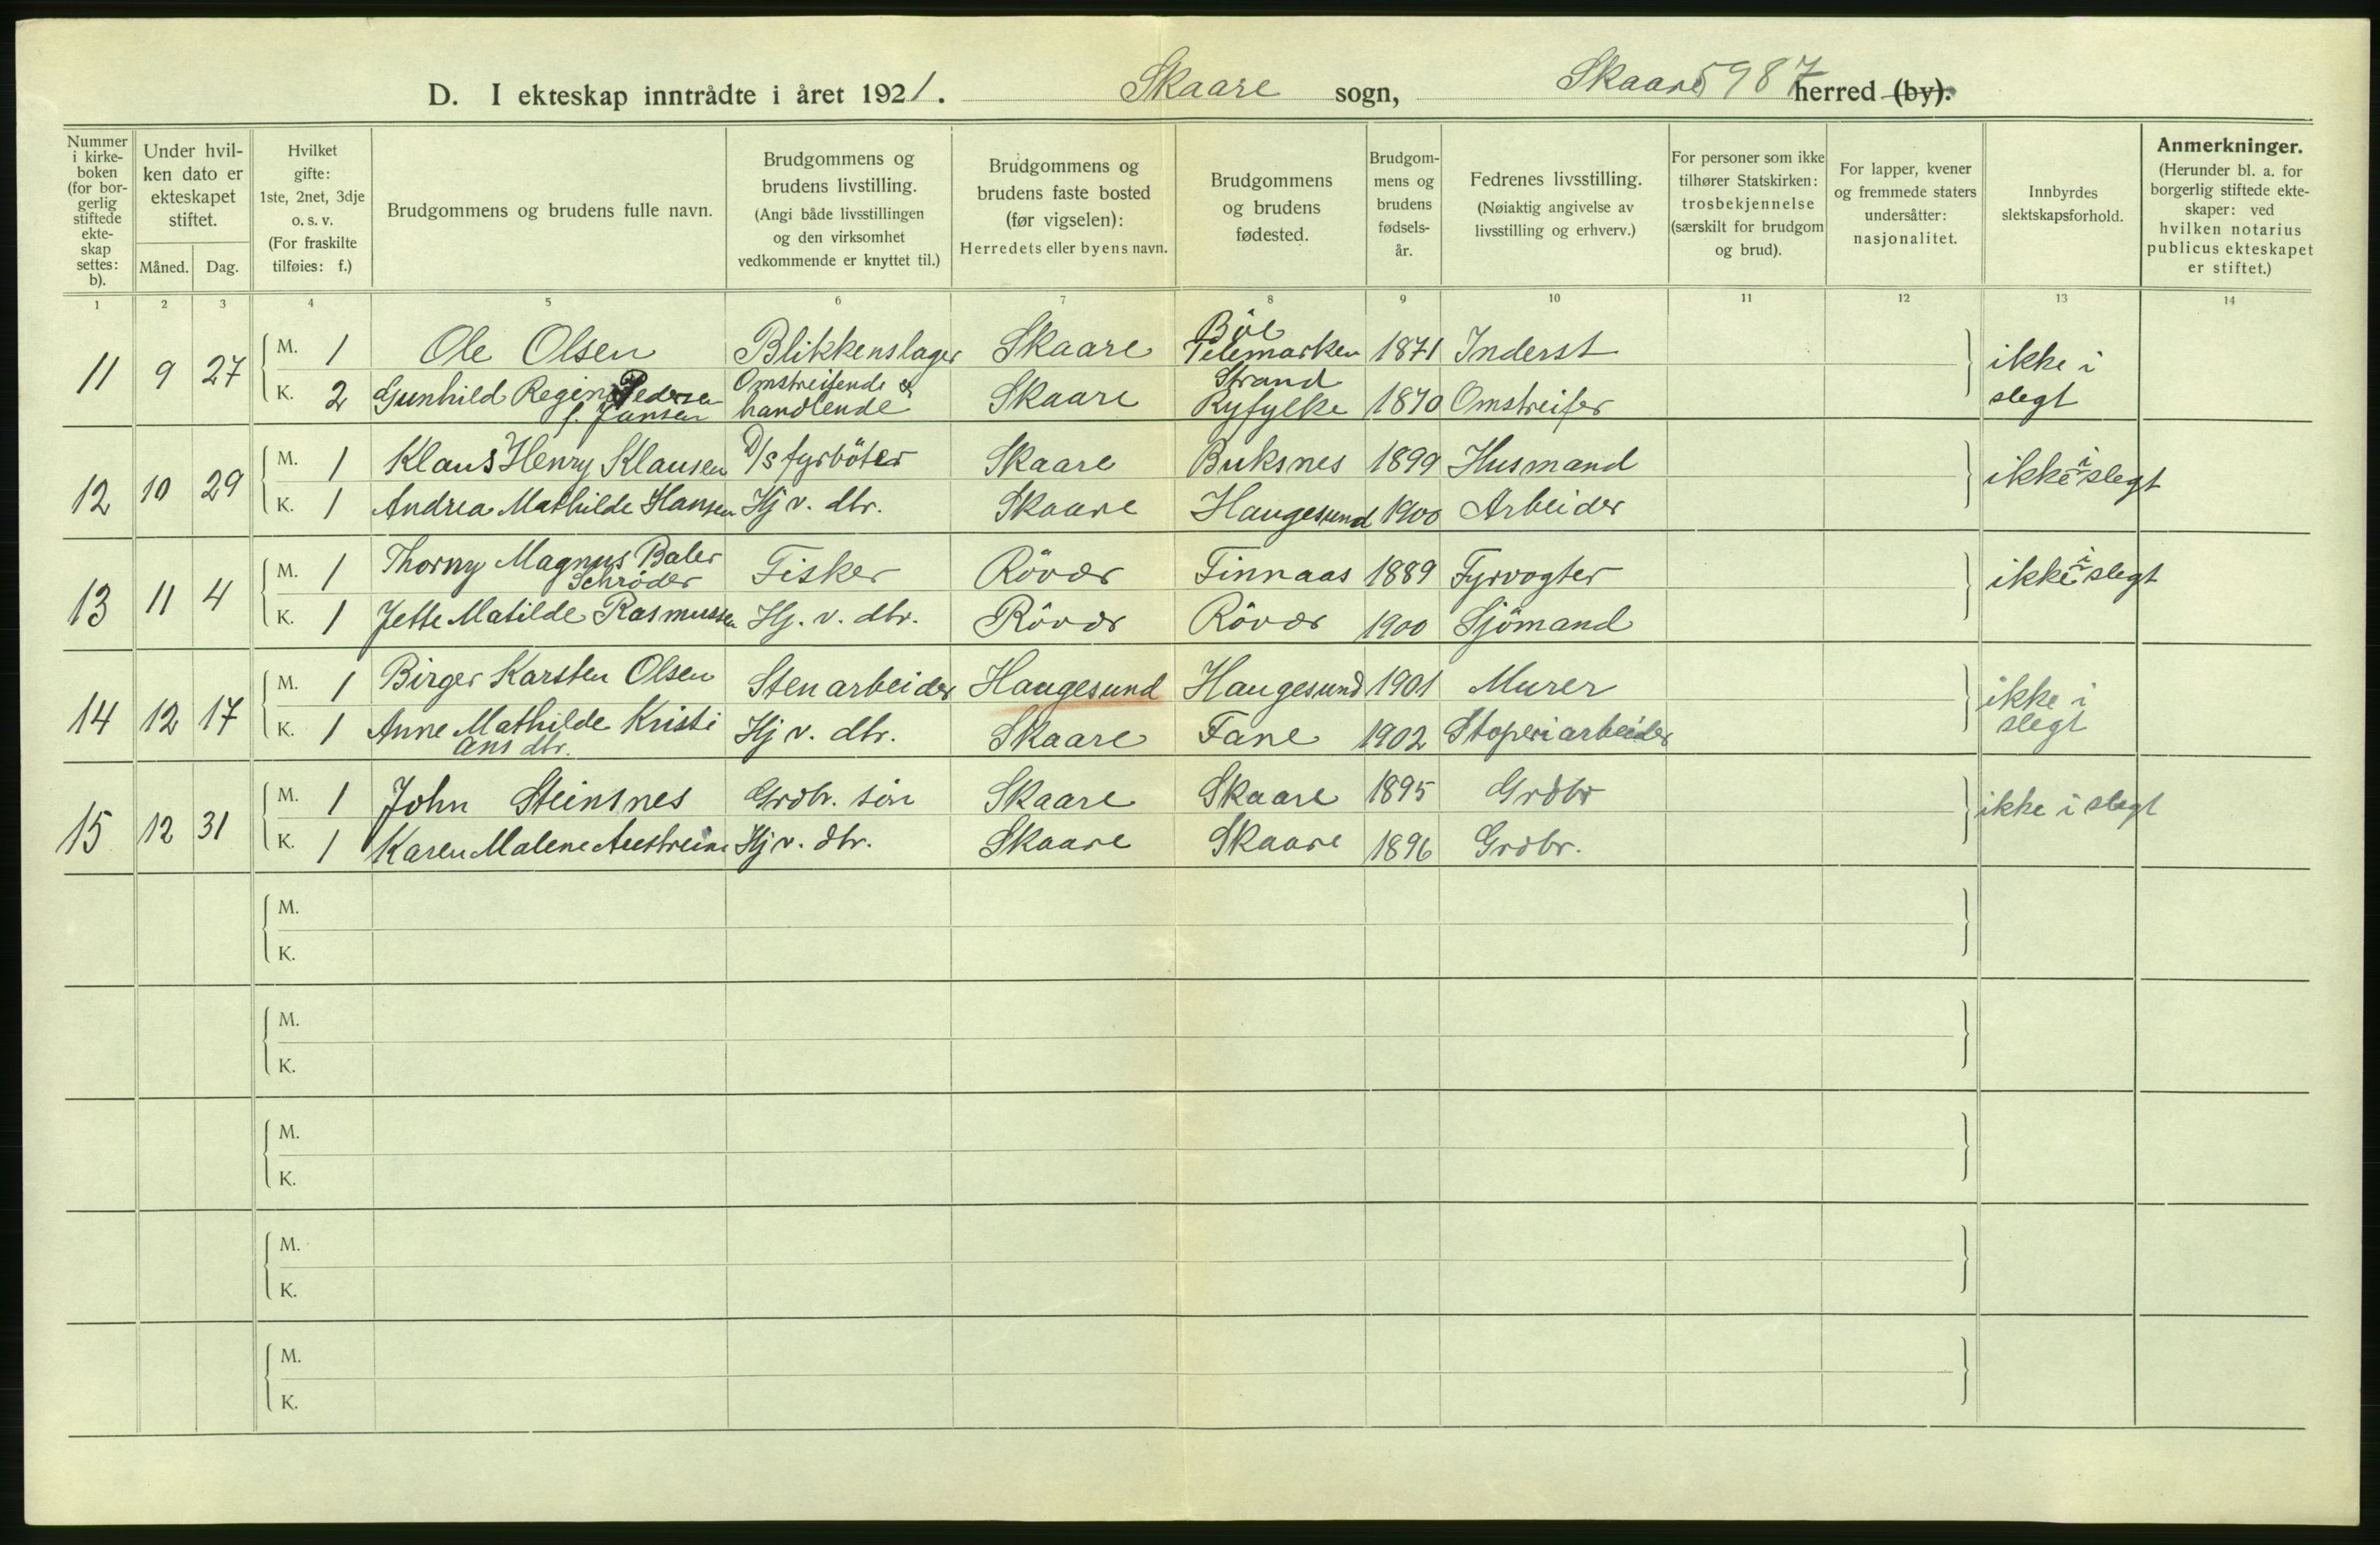 D. I ekteskap inntrådte i året 1921. Skaare sogn, Skaare 5987 herred (by).
Nummer i kirke-boken (for bor-gerlig stiftede ekte-skap settes: b).
Under hvil-ken dato er ekteskapet stiftet.
Måned. Dag.
Hvilket gifte: 1ste, 2net, 3dje o. s. v. (For fraskilte tilføies: f.)
Brudgommens og brudens fulle navn.
Brudgommens og brudens livstilling. (Angi både livsstillingen og den virksomhet vedkommende er knyttet til.)
Brudgommens og brudens faste bosted (før vigselen): Herredets eller byens navn.
Brudgommens og brudens fødested.
Brudgom-mens og brudens fødsels-år.
Fedrenes livsstilling. (Nøiaktig angivelse av livsstilling og erhverv.)
For personer som ikke tilhører Statskirken: trosbekjennelse (særskilt for brudgom og brud).
For lapper, kvener og fremmede staters undersåtter: nasjonalitet.
Innbyrdes slektskapsforhold.
Anmerkninger. (Herunder bl. a. for borgerlig stiftede ekte-skaper: ved hvilken notarius publicus ekteskapet er stiftet.)
1 2 3 4 5 6 7 8 9 10 11 12 13 14
11 9 27 M. 1 Ole Olsen Blikkenslager Skaare Böe Telemarken 1871 Inderst ikke i slegt
K. 2 Gunhild Regine Pedersen f. Jansen Omstreifende & handlende Skaare Strand Ryfylke 1870 Omstreifer
12 10 29 M. 1 Klaus Henry Klausen D/s fyrböter Skaare Buksnes 1899 Husmand ikke i slegt
K. 1 Andrea Mathilde Hansen Hj v. dtr. Skaare Haugesund 1900 Arbeider
13 11 4 M. 1 Thorny Magnus Baler Schröder Fisker Röver Finnaas 1889 Fyrvogter ikke i slegt
K. 1 Jette Matilde Rasmussen Hj. v. dtr. Röver Röver 1900 Sjömand
14 12 17 M. 1 Birger Karsten Olsen Stenarbeider Haugesund Haugesund 1901 Murer ikke i slegt
K. 1 Anne Mathilde Kristi ans dtr. Hj v. dtr. Skaare Fane 1902 Stoperiarbeider
15 12 31 M. 1 John Steinsnes Grdbr. sön Skaare Skaare 1895 Grdbr ikke i slegt
K. 1 Karen Malene Hj v. dtr. Skaare Skaare 1896 Grdbr.
M.
K.
M.
K.
M.
K.
M.
K.
M.
K.